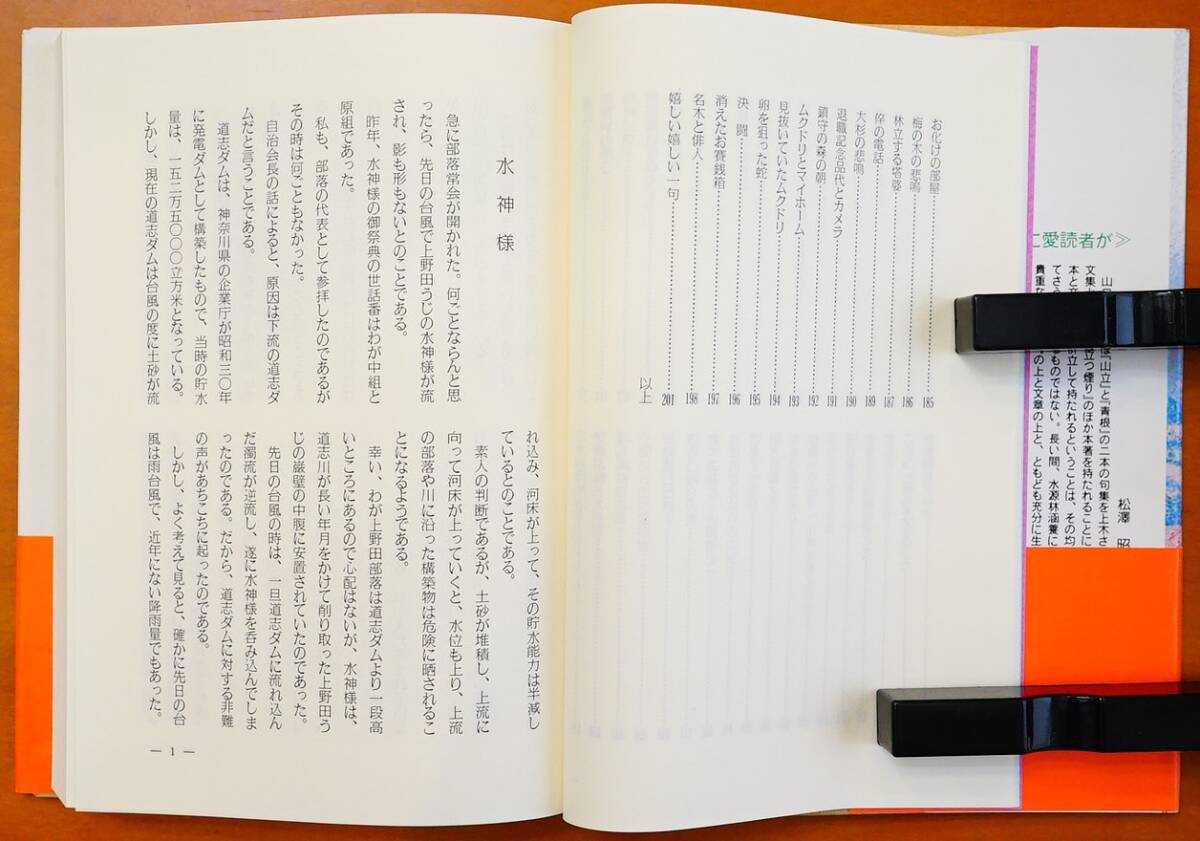 に愛読者が≫
松澤 昭
お化けの部屋……185
梅の木の悲鳴……186
林立する塔婆……187
倅の電話……189
大杉の悲鳴……190
退職記念品代とカメラ……191
鎮守の森の朝……192
ムクドリとマイホーム……193
見抜いていたムクドリ……194
卵を狙った蛇……195
決 闘……196
消えたお賽銭箱……197
名木と俳人……198
嬉しい嬉しい一句……201
以上
水 神 様
急に部落常会が開かれた。何ごとならんと思
ったら、先日の台風で上野田うじの水神様が流
され、影も形もないとのことである。
昨年、水神様の御祭典の世話番はわが中組と
原組であった。
私も、部落の代表として参拝したのであるが
その時は何ごともなかった。
自治会長の話によると、原因は下流の道志ダ
ムだと言うことである。
道志ダムは、神奈川県の企業庁が昭和三〇年
に発電ダムとして構築したもので、当時の貯水
量は、一五二万五〇〇〇立方米となっている。
しかし、現在の道志ダムは台風の度に土砂が流
れ込み、河床が上って、その貯水能力は半減し
ているとのことである。
素人の判断であるが、土砂が堆積し、上流に
向って河床が上っていくと、水位も上り、上流
の部落や川に沿った構築物は危険に晒されるこ
とになるようである。
幸い、わが上野田部落は道志ダムより一段高
いところにあるので心配はないが、水神様は、
道志川が長い年月をかけて削り取った上野田う
じの巌壁の中腹に安置されていたのであった。
先日の台風の時は、一旦道志ダムに流れ込ん
だ濁流が逆流し、遂に水神様を呑み込んでしま
ったのである。だから、道志ダムに対する非難
の声があちこちに起ったのである。
しかし、よく考えて見ると、確かに先日の台
風は雨台風で、近年にない降雨量でもあった。
— 1 —